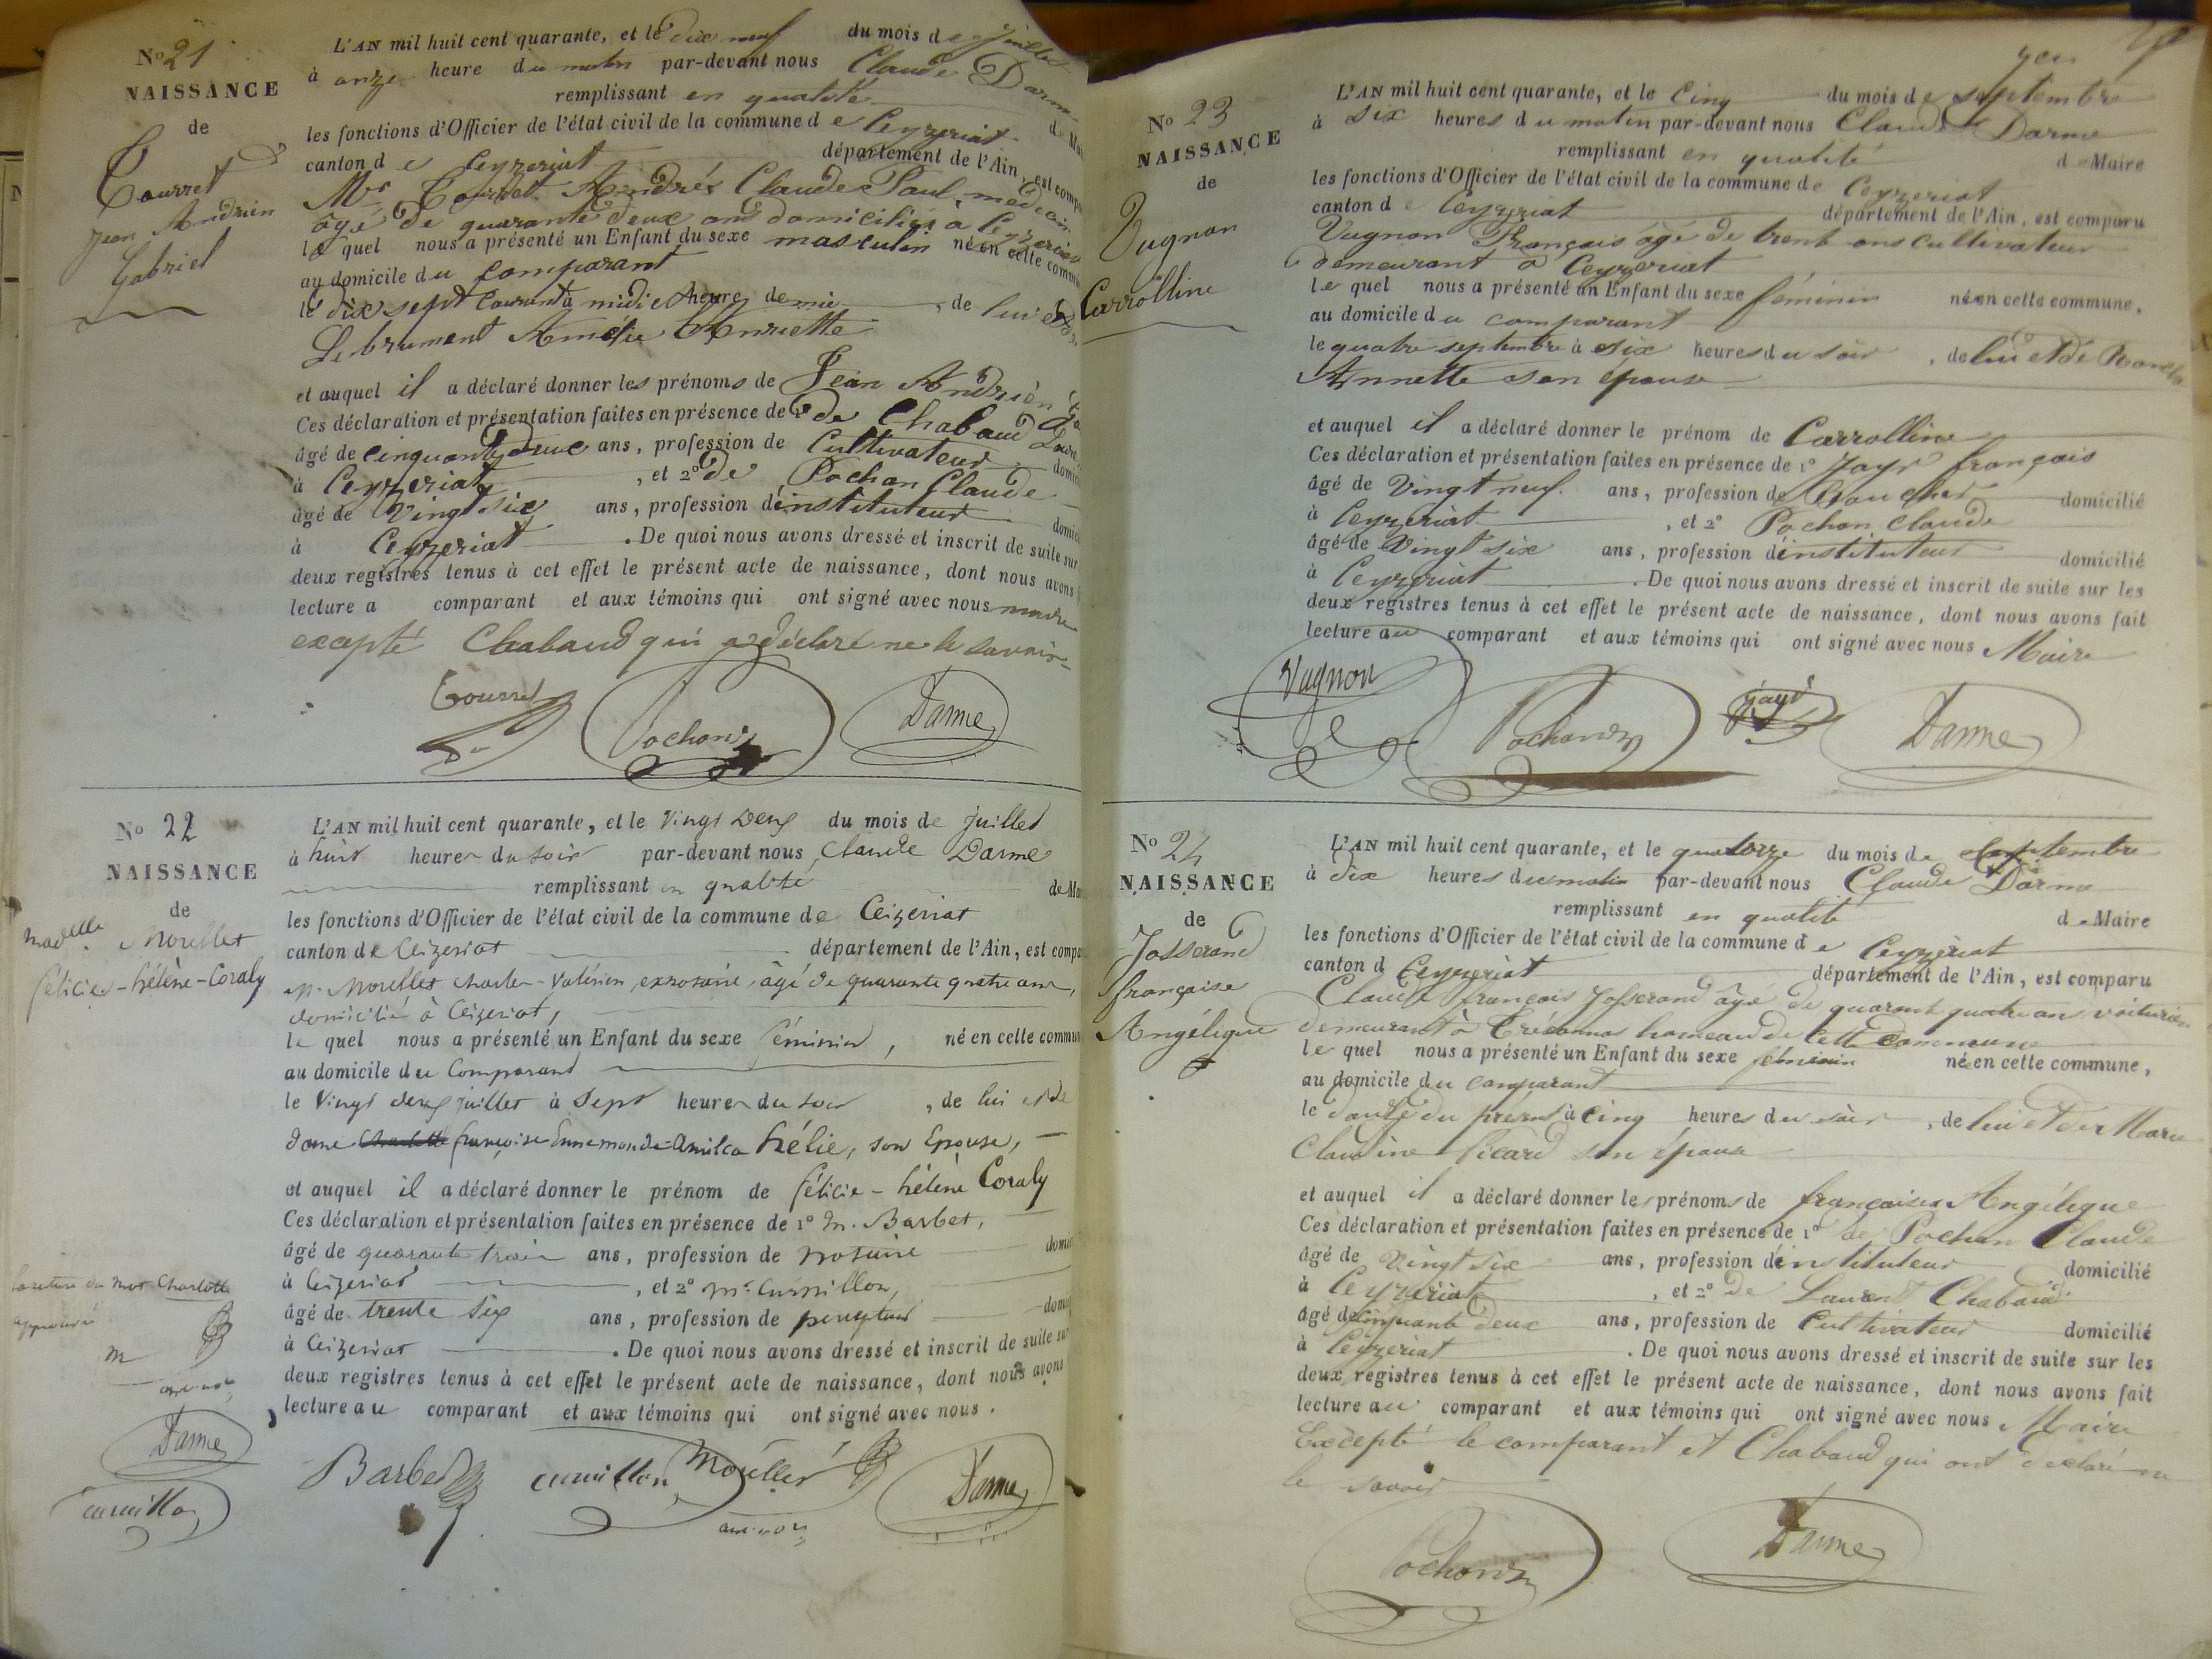 No 21
NAISSANCE
de
Tourret
Jean Andrien
Gabriel
L'AN mil huit cent quarante, et le dix neuf du mois de juillet
à onze heure du matin par-devant nous Claude Darme
remplissant en qualité
les fonctions d'Officier de l'état civil de la commune de Ceyzeriat
canton de Ceyzeriat département de l'Ain, est comp
Mr Tourret André Claude Paul, médecin
âgé de quarante deux ans domicilié à Ceyzeriat
le quel nous a présenté un Enfant du sexe masculin né en cette comm
au domicile du comparant
le dix sept courant à midi et heure demie, de lui et
Lebrument Amélie Henriette
et auquel il a déclaré donner les prénoms de Jean Andrien
Ces déclaration et présentation faites en présence de 1º de Chabaud
âgé de cinquante deux ans, profession de Cultivateur
à Ceyzeriat, et 2º de Pochon Claude
âgé de Vingt six ans, profession d'instituteur
à Ceyzeriat. De quoi nous avons dressé et inscrit de suite sur
deux registres tenus à cet effet le présent acte de naissance, dont nous avons
lecture a comparant et aux témoins qui ont signé avec nous
excepté Chabaud qui a déclaré ne le savoir
Tourret Pochon Darme
No 22
NAISSANCE
de
Madelle Morellet
félicie-hélène-Coraly
L'AN mil huit cent quarante, et le Vingt Deux du mois de juillet
à huit heures du soir par-devant nous Claude Darme
remplissant en qualité de Ma
les fonctions d'Officier de l'état civil de la commune de Ceizeriat
canton de Ceizeriat département de l'Ain, est comp
Mr Morellet Charles-Valérien, exnotaire, âgé de quarante quatre ans,
domicilié à Ceizeriat,
le quel nous a présenté un Enfant du sexe féminin, né en cette commun
au domicile du Comparant
le Vingt deux juillet à Sept heures du soir, de lui et de
dame Charlotte françoise Ennemonde-Amilca hélie, son Epouse,
et auquel il a déclaré donner le prénom de félicie-hélène Coraly
Ces déclaration et présentation faites en présence de 1º M. Barbet,
âgé de quarante trois ans, profession de notaire
à Ceizeriat, et 2º Mr Cuvillon,
âgé de trente six ans, profession de percepteur
à Ceizeriat. De quoi nous avons dressé et inscrit de suite sur
deux registres tenus à cet effet le présent acte de naissance, dont nous avons
lecture au comparant et aux témoins qui ont signé avec nous.
la rature du mot Charlotte
approuvé
Darme
Barbet Morellet Darme
No 23
NAISSANCE
de
Vugnon
Carrolline
L'AN mil huit cent quarante, et le Cinq du mois de septembre
à six heures du matin par-devant nous Claude Darme
remplissant en qualité de Maire
les fonctions d'Officier de l'état civil de la commune de Ceyzeriat
canton de Ceyzeriat département de l'Ain, est comparu
Vugnon François âgé de trente ans cultivateur
demeurant à Ceyzeriat
le quel nous a présenté un Enfant du sexe féminin né en cette commune,
au domicile du comparant
le quatre septembre à six heures du soir, de lui et de
Annette son épouse
et auquel il a déclaré donner le prénom de Carrolline
Ces déclaration et présentation faites en présence de 1º Jayr françois
âgé de Vingt neuf ans, profession de boucher domicilié
à Ceyzeriat, et 2º Pochon Claude
âgé de Vingt six ans, profession d'instituteur domicilié
à Ceyzeriat. De quoi nous avons dressé et inscrit de suite sur les
deux registres tenus à cet effet le présent acte de naissance, dont nous avons fait
lecture au comparant et aux témoins qui ont signé avec nous Maire
Vugnon Pochon Jayr Darme
No 24
NAISSANCE
de
Josserand
françoise
Angélique
L'AN mil huit cent quarante, et le quatorze du mois de septembre
à dix heures du matin par-devant nous Claude Darme
remplissant en qualité de Maire
les fonctions d'Officier de l'état civil de la commune de Ceyzeriat
canton d Ceyzeriat département de l'Ain, est comparu
Claude françois Josserand âgé de quarante quatre ans voiturier
demeurant à hameau de cette Commune
le quel nous a présenté un Enfant du sexe féminin né en cette commune,
au domicile du comparant
le douze du présent à cinq heures du soir, de lui et de Marie
Claudine Picard son épouse
et auquel il a déclaré donner les prénoms de françoise Angélique
Ces déclaration et présentation faites en présence de 1º de Pochon Claude
âgé de Vingt six ans, profession d'instituteur domicilié
à Ceyzeriat, et 2º de Laurent Chabaud
âgé de cinquante deux ans, profession de Cultivateur domicilié
à Ceyzeriat. De quoi nous avons dressé et inscrit de suite sur les
deux registres tenus à cet effet le présent acte de naissance, dont nous avons fait
lecture au comparant et aux témoins qui ont signé avec nous Maire
Excepté le comparant et Chabaud qui ont déclaré ne
le savoir
Pochon Darme